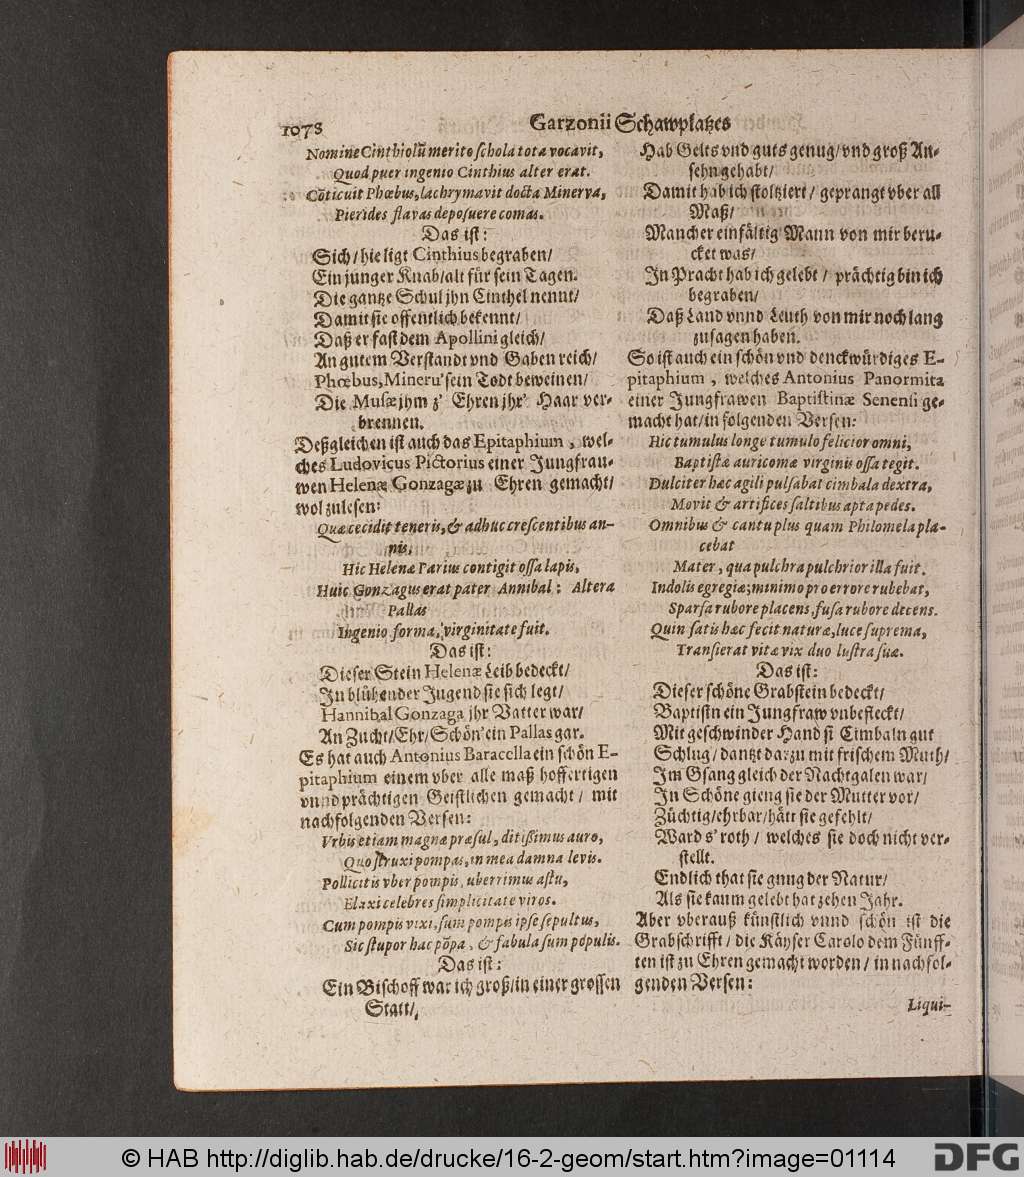 1078
Garzonii Schawplatzes
Nomine Cinthiolũ merito schola tota vocavit,
Quod puer ingenio Cinthius alter erat.
Cõticuit Phœbus, lachrymavit docta Minerva,
Pierides flavas deposuere comas.
Das ist:
Sich/ hie ligt Cinthius begraben/
Ein junger Knab/ alt für sein Tagen.
Die gantze Schul jhn Cinthel nennt/
Damit sie offentlich bekennt/
Daß er fast dem Apollini gleich/
An gutem Verstandt vnd Gaben reich/
Phœbus, Mineru' sein Todt beweinen/
Die Musæ jhm z' Ehren jhr' Haar ver-
brennen.
Deßgleichen ist auch das Epitaphium, wel-
ches Ludovicus Pictorius einer Jungfrau-
wen Helenæ Gonzagæ zu Ehren gemacht/
wol zulesen:
Quæ cecidit teneris, & adhuc crescentibus an-
nis,
Hic Helenæ Parius contigit ossa lapis,
Huic Gonzagus erat pater Annibal: Altera
Pallas
Ingenio forma, virginitate fuit.
Das ist:
Dieser Stein Helenæ Leib bedeckt/
In blühender Jugend sie sich legt/
Hannibal Gonzaga jhr Vatter war/
An Zucht/ Ehr/ Schön' ein Pallas gar.
Es hat auch Antonius Baracella ein schön E-
pitaphium einem vber alle maß hoffertigen
vnnd prächtigen Geistlichen gemacht/ mit
nachfolgenden Versen:
Vrbis etiam magnæ præsul, ditißimus auro,
Quo struxi pompas, in mea damna levis.
Pollicitis vber pompis, uberrimus astu,
Elaxi celebres simplicitate viros.
Cum pompis vixi, sum pompis ipse sepultus,
Sic stupor hac põpa, & fabula sum populis.
Das ist:
Ein Bischoff war ich groß/ in einer grossen
Statt/
Hab Gelts vnd guts genug/ vnd groß An-
sehn gehabt/
Damit hab ich stoltziert/ geprangt vber all
Maß/
Mancher einfältig Mann von mir beru-
cket was/
In Pracht hab ich gelebt/ prächtig bin ich
begraben/
Daß Land vnnd Leuth von mir noch lang
zusagen haben.
So ist auch ein schön vnd denckwürdiges E-
pitaphium, welches Antonius Panormita
einer Jungfrawen Baptistinæ Senensi ge-
macht hat/ in folgenden Versen:
Hic tumulus longe tumulo felicior omni,
Baptistæ auricomæ virginis ossa tegit.
Dulciter hæc agili pulsabat cimbala dextra,
Movit & artifices saltibus apta pedes.
Omnibus & cantu plus quam Philomela pla-
cebat
Mater, qua pulchra pulchrior illa fuit.
Indolis egregiæ; minimo pro errore rubebat,
Sparsa rubore placens, fusa rubore decens.
Quin satis hæc fecit naturæ, luce suprema,
Transierat vitæ vix duo lustra suæ.
Das ist:
Dieser schöne Grabstein bedeckt/
Baptistn ein Jungfraw vnbefleckt/
Mit geschwinder Hand si Cimbaln gut
Schlug/ dantzt darzu mit frischem Muth/
Im Gsang gleich der Nachtgalen war/
In Schöne gieng sie der Mutter vor/
Züchtig/ ehrbar/ hätt sie gefehlt/
Ward s' roth/ welches sie doch nicht ver-
stellt.
Endlich that sie gnug der Natur/
Als sie kaum gelebt hat zehen Jahr.
Aber vberauß künstlich vnnd schön ist die
Grabschrifft/ die Käyser Carolo dem Fünff-
ten ist zu Ehren gemacht worden/ in nachfol-
genden Versen:
Liqui-
© HAB http://diglib.hab.de/drucke/16-2-geom/start.htm?image=01114
DFG